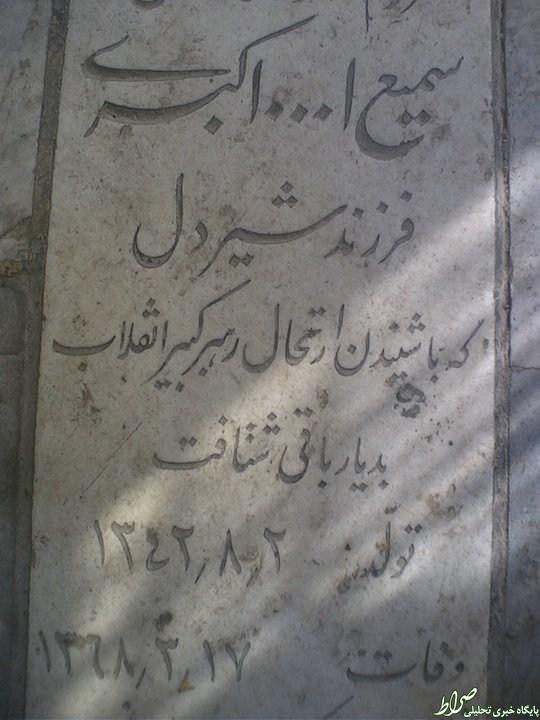 سمیع ا... اکبری
فرزند شیردل
که باشنیدن ارتحال رهبر کبیر انقلاب
بدیار باقی شتافت
تولّد ۱۳۴۲٫۸٫۲
وفات ۱۳۶۸٫۳٫۱۷
صراط
پایگاه خبری تحلیلی